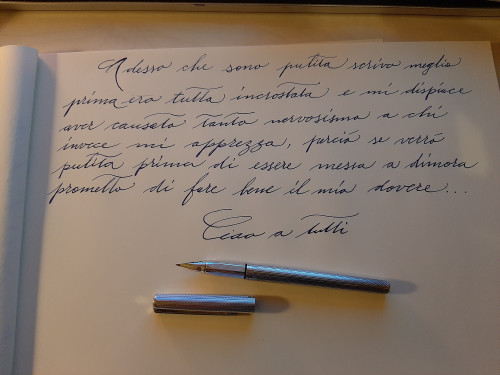 Adesso che sono pulita scrivo meglio
prima ero tutta incrostata e mi dispiace
aver causato tanto nervosismo a chi
invece mi apprezza, perciò se verrò
pulita prima di essere messa a dimora
prometto di fare bene il mio dovere...
Ciao a tutti